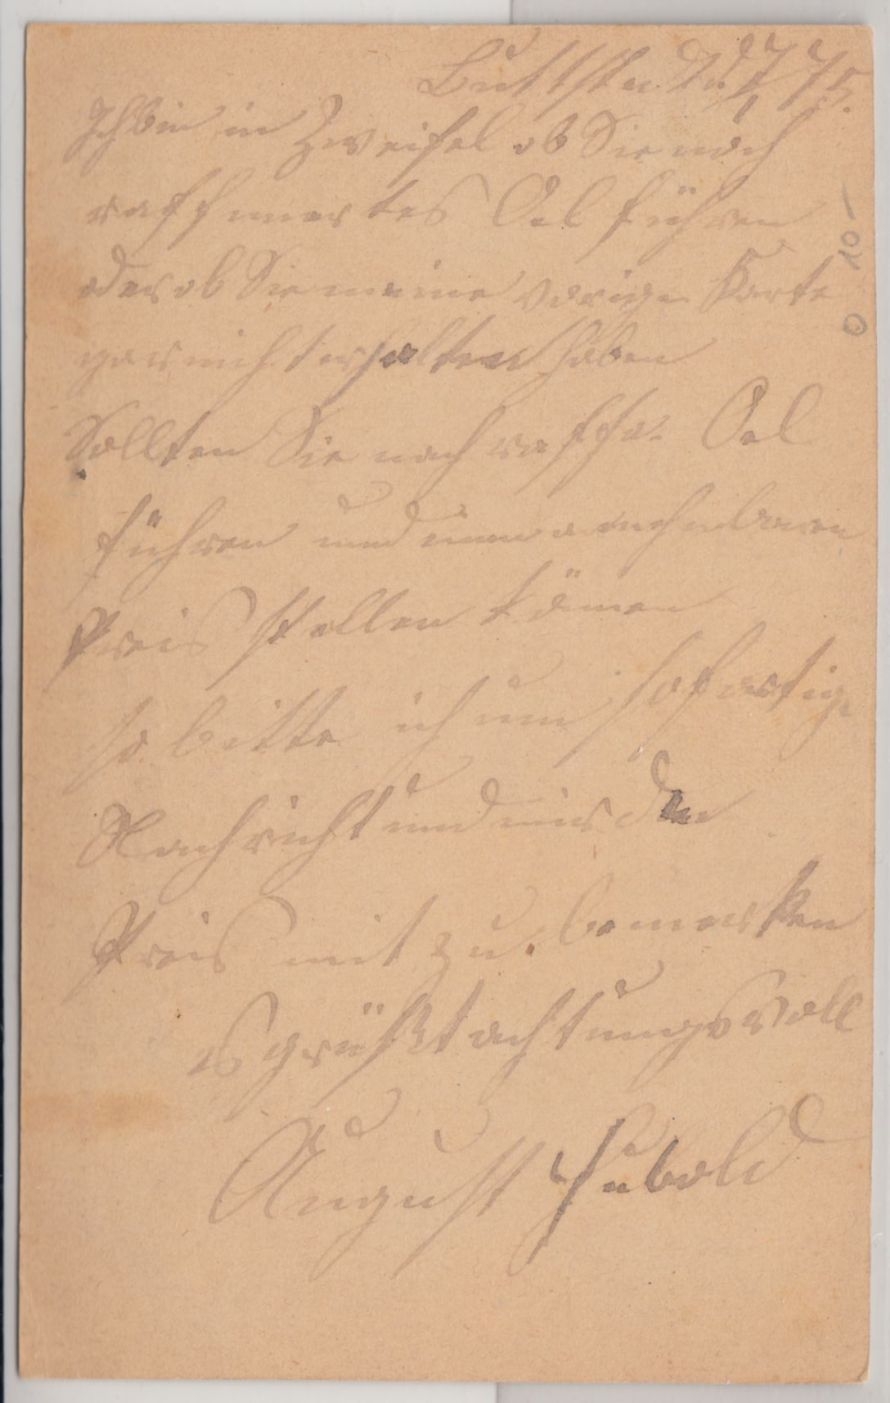 Buttstädt d 7/7 75.
Ich bin in Zweifel ob Sie noch
raffinirtes Oel führen
oder ob Sie meine vorige Karte
gar nicht erhalten haben
Sollten Sie noch raff. Oel
führen und einen annehmbaren
Preis stellen können
so bitte ich um sofortige
Nachricht und mir den
Preis mit zu bemerken
es grüßt achtungsvoll
August Hubold
0 10-